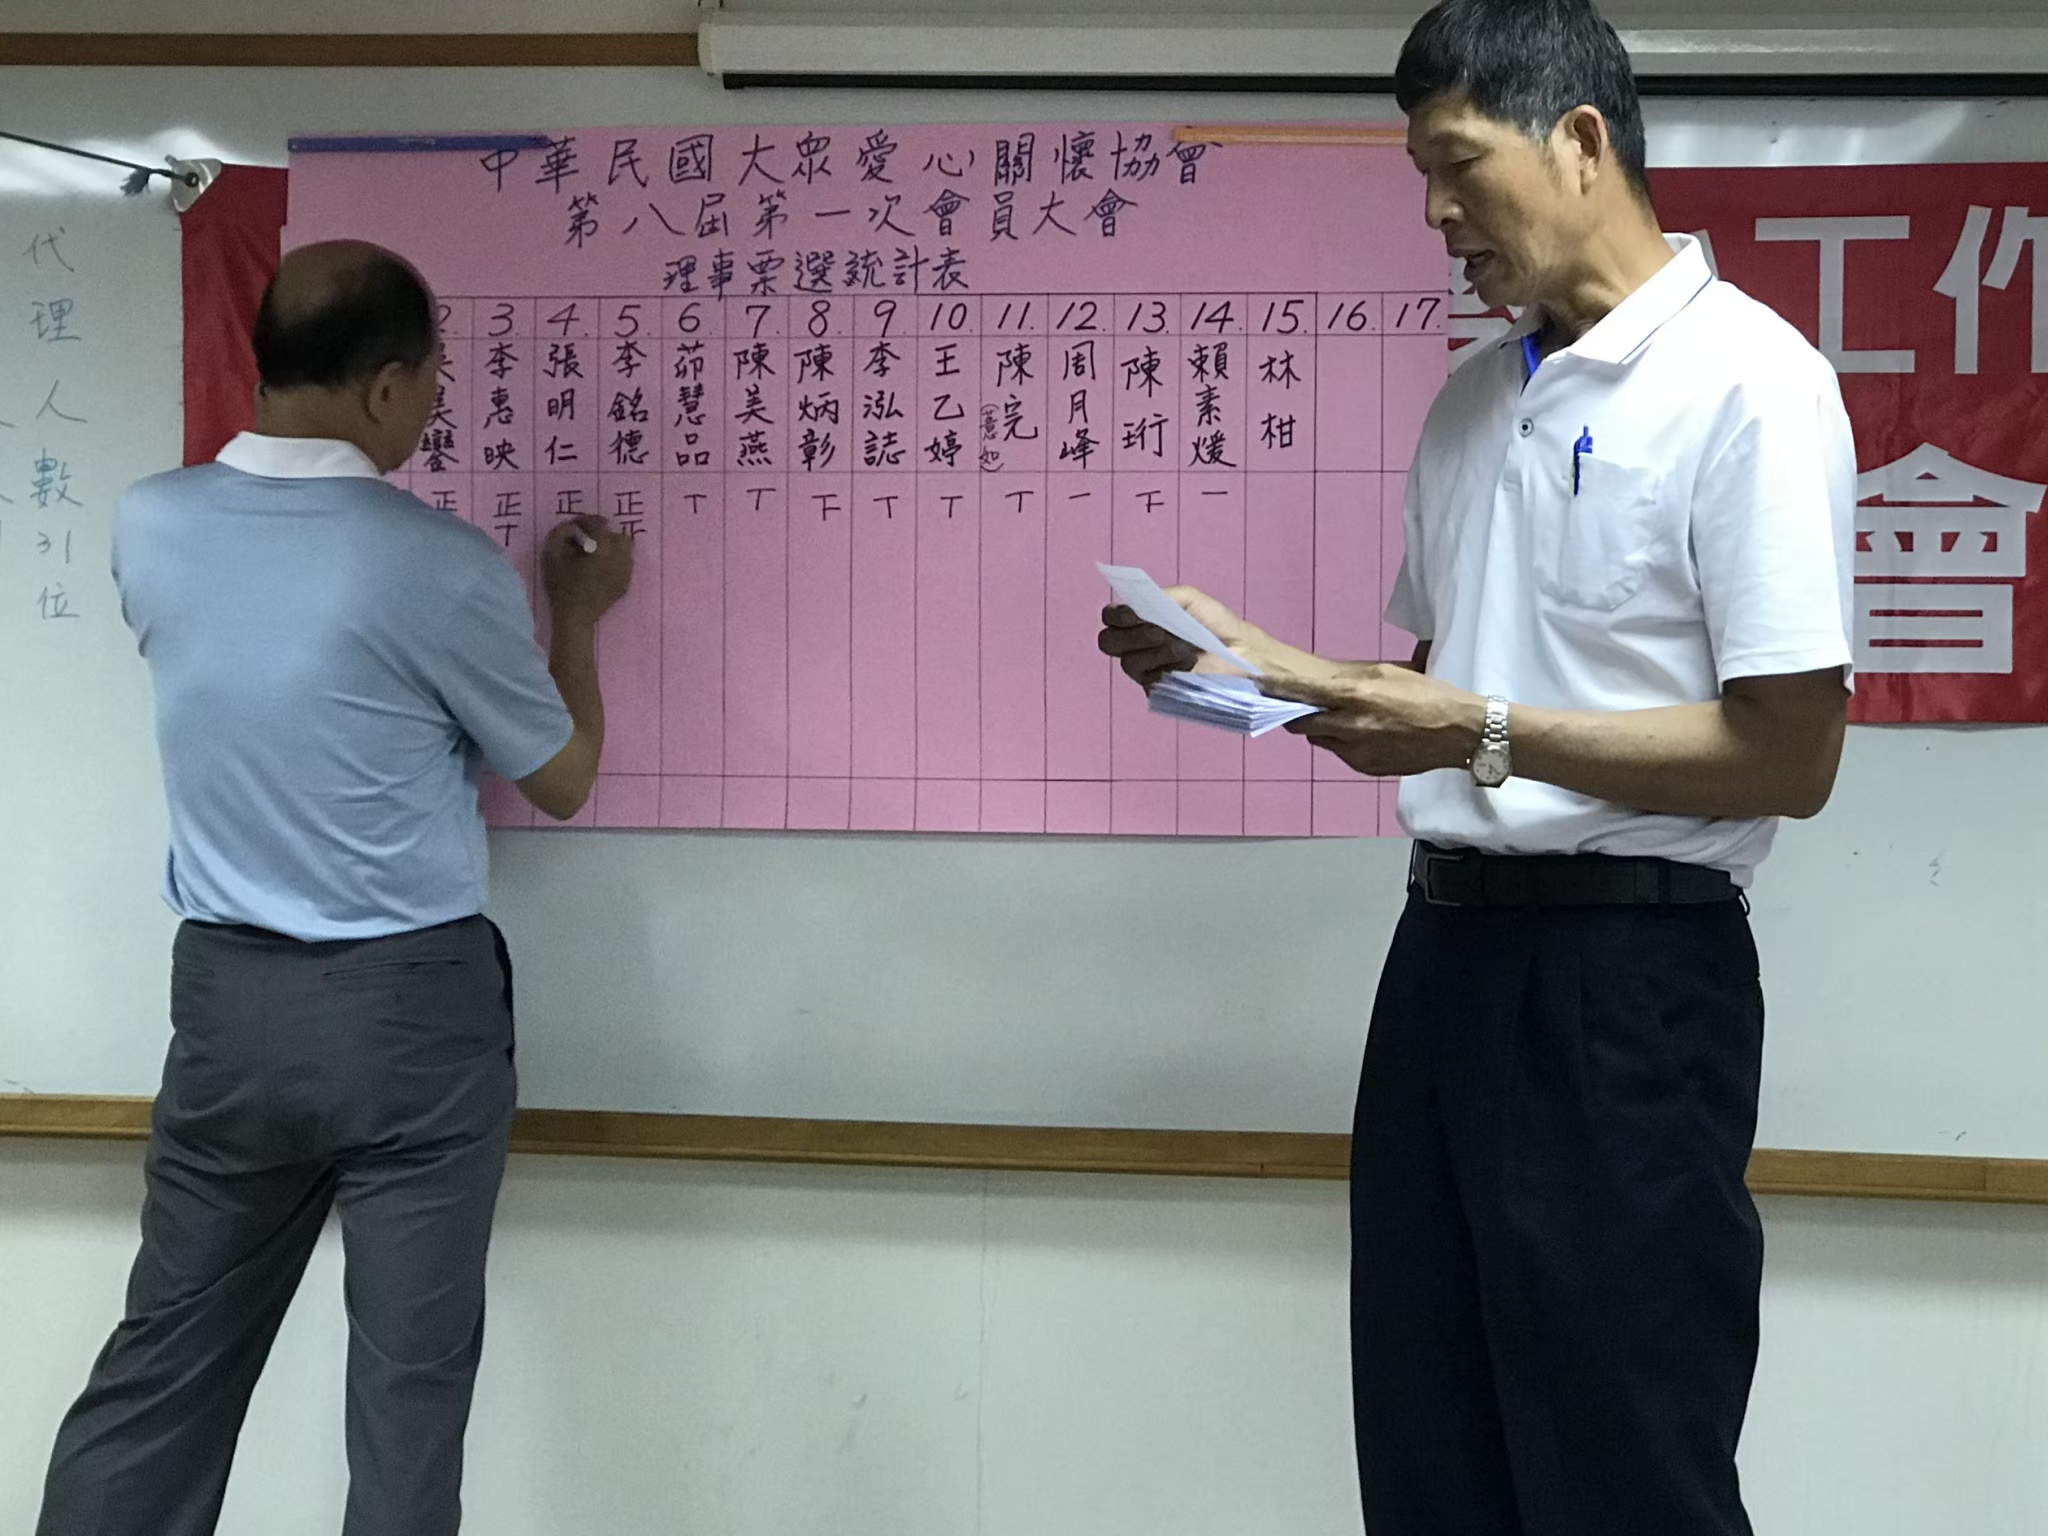 中華民國大眾愛心關懷協會
第八屆第一次會員大會
理事票選統計表
2. 3. 4. 5. 6. 7. 8. 9. 10. 11. 12. 13. 14. 15. 16. 17.
美鑾
李惠映
張明仁
李銘德
茆慧品
陳美燕
陳炳彰
李泓誌
王乙婷
陳完
(薏如)
周月峰
陳珩
賴素煖
林柑
正 正 正 正 丅 丅 下 丅 丅 丅 一 下 一
丅 正
代理人數31位
工作
會